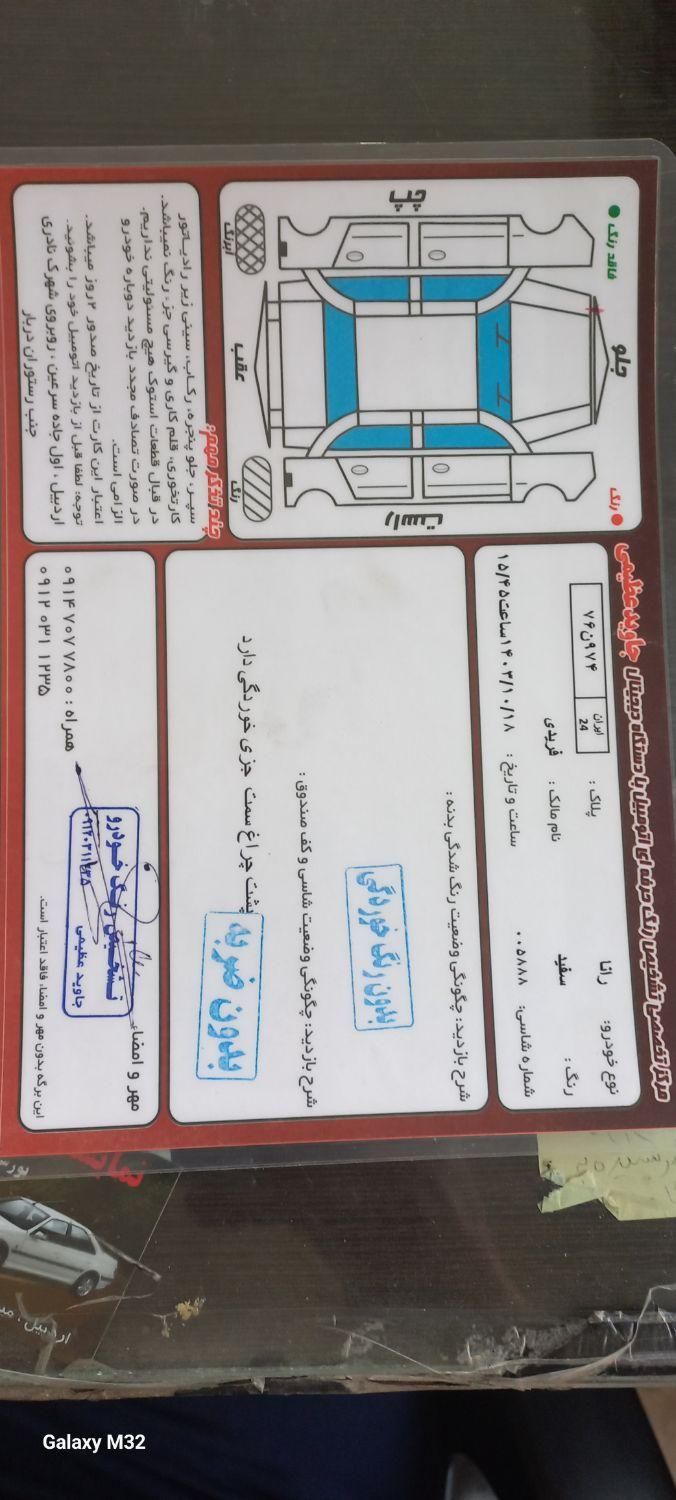 مرکز تخصصی تشخیص رنگ حرفه ای اتومبیل با دستگاه دیجیتال جاوید عظیمی
نوع خودرو: رانا
پلاک:
۷۶ن۹۷۴
ایران
24
رنگ: سفید
نام مالک: فریدی
شماره شاسی: ۰۰۵۸۸۸
ساعت و تاریخ: ۱۴۰۳/۱۰/۱۸ساعت۱۵/۴۵
شرح بازدید: چگونگی وضعیت رنگ شدگی بدنه:
بدون رنگ خوردگی
شرح بازدید: چگونگی وضعیت شاسی و کف صندوق:
بدون ضربه
پشت چراغ سمت جزی خوردگی دارد
مهر و امضاء
تشخیص رنگ خودرو
جاوید عظیمی
همراه: ۰۹۱۴ ۷۰۷ ۷۸۰۰
۰۹۱۲ ۰۳۱ ۱۲۳۵
این برگه بدون مهر و امضاء فاقد اعتبار است.
فاقد رنگ
جلو
رنگ
چپ
راست
عقب
آبرنگ
رنگ
چند تذکر مهم:
سپر، جلو پنجره، رکاب، سینی زیر رادیاتور
کارتخوری، قلم کاری و گیرسی جز، رنگ نمیباشد.
در قبال قطعات استوک هیچ مسئولیتی نداریم.
در صورت تصادف مجدد بازدید دوباره خودرو
الزامی است.
اعتبار این کارت از تاریخ صدور ۲روز میباشد.
توجه: لطفا قبل از بازدید اتومبیل خود را بشوئید.
اردبیل، اول جاده سرعین، روبروی شهرک نادری
جنب رستوران دربار
Galaxy M32